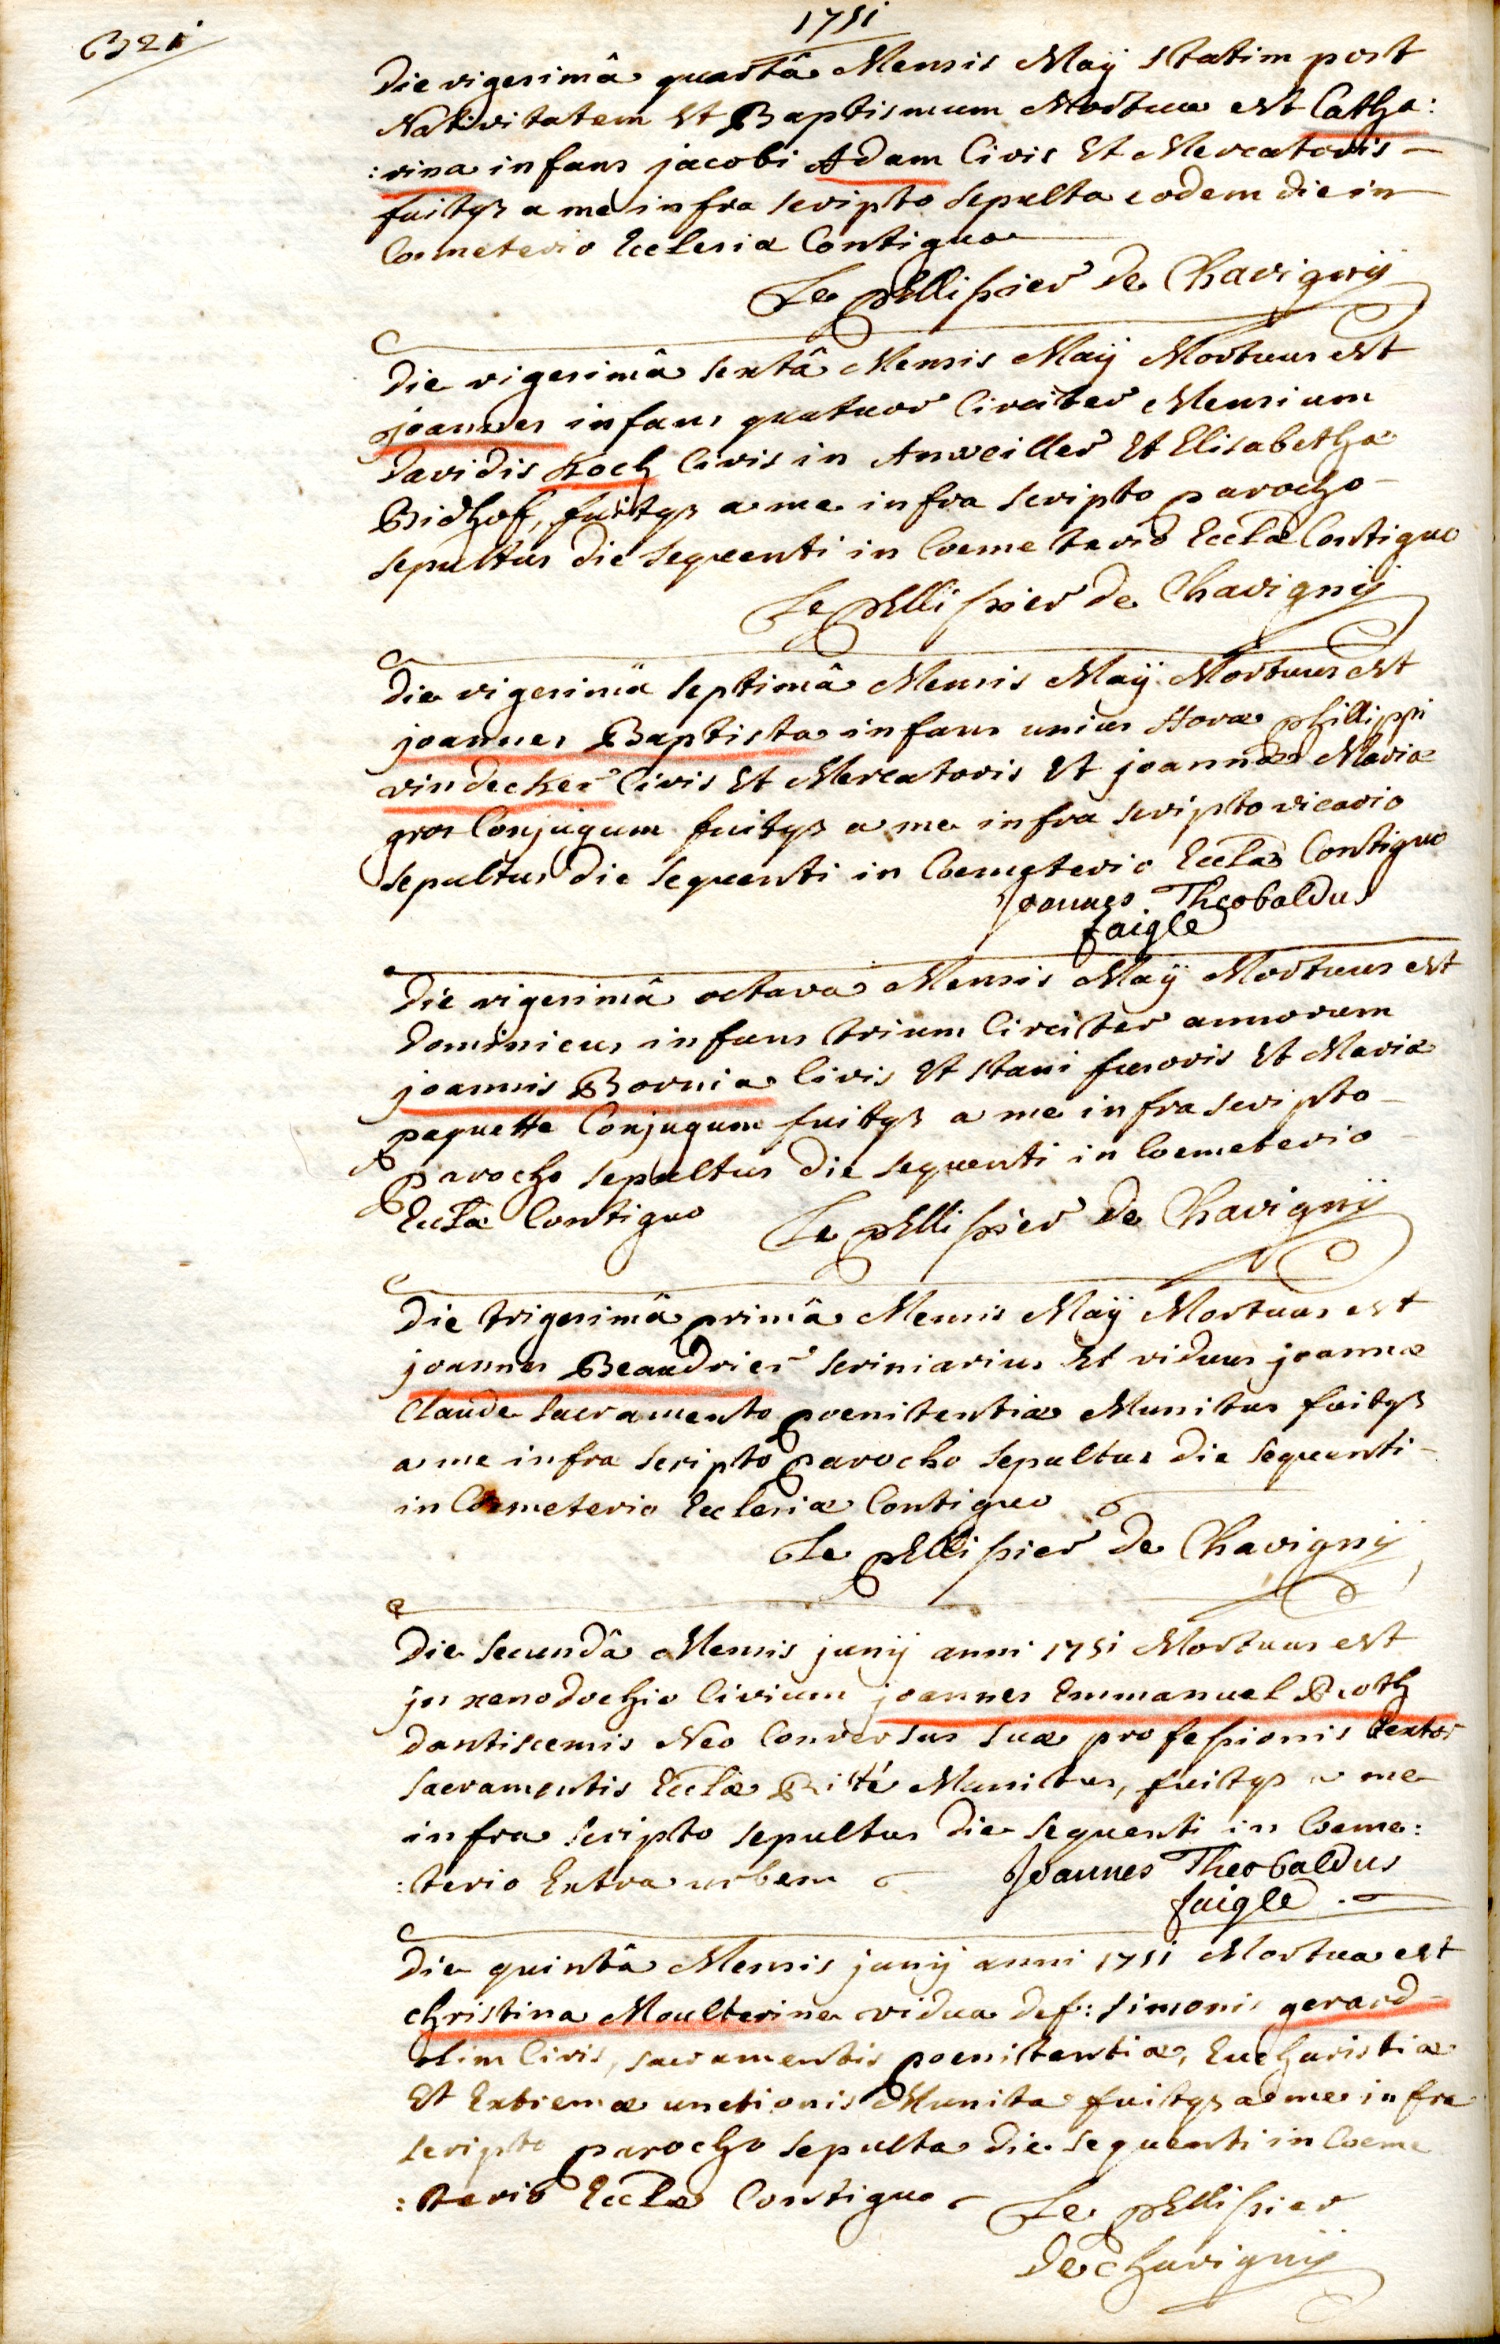 321
1751
Die vigesimâ quartâ Mensis Maÿ statim post
Nativitatem et Baptismum Mortua est Catha:
:rina infans jacobi Adam Civis Et Mercatoris –
fuitqz a me infra scripto sepulta eodem die in
Coemeterio Ecclesiæ Contiguo
Le pellissier de Chavignÿ
Die vigesimâ sextâ Mensis Maÿ Mortuus est
joannes infans quatuor Circiter Mensium
Davidis Koch Civis in Anweiller Et Elisabetha
Bidhof, fuitqz a me infra scripto parocho –
sepultus die sequenti in Coemeterio Eccłæ Contiguo
Le pellissier de Chavignÿ
Die vigesimâ septimâ Mensis Maÿ Mortuus est
joannes Baptista infans unius Horæ phillippi
vindecker Civis Et Mercatoris Et joannæ Mariæ
gros Conjugum fuitqz a me infra scripto vicario
sepultus die sequenti in Coemeterio Eccłæ Contiguo
Joannes Theobaldus
faigle
Die vigesimâ octava Mensis Maÿ Mortuus est
Dominicus infans trium Circiter annorum
joannis Bornia Civis Et stani fusoris Et Maria
paquette Conjugum fuitqz a me infra scripto –
parocho sepultus die sequenti in Coemeterio –
Eccłæ Contiguo Le pellissier de Chavignÿ
Die trigesimâ primâ Mensis Maÿ Mortuus est
joannes Beaudrier scriniarius Et viduus joannæ
Claude sacramento poenitentiæ Munitus fuitqz
a me infra scripto parocho sepultus die sequenti –
in Coemeterio Ecclesiæ Contiguo
Le pellissier de Chavignÿ
Die secundâ Mensis junÿ anni 1751 Mortuus est
in xenodochio Civium joannes Emmanuel Roth
dantiscensis Neo Conversus suæ professionis textor
sacramentis Eccłæ Rité Munitus, fuitqz a me
infra scripto sepultus die sequenti in Coeme:
:terio Extra urbem Joannes Theobaldus
faigle
Die quintâ Mensis junÿ anni 1751 Mortua est
christina Moulterine vidua def: simonis gerard –
olim Civis, sacramentis poenitentiæ, Eucharistiæ
Et Extremæ unctionis Munita fuitqz a me infra
scripto parocho sepulta die sequenti in Coeme
:terio Eccłæ Contiguo – Le pellissier
de chavignÿ